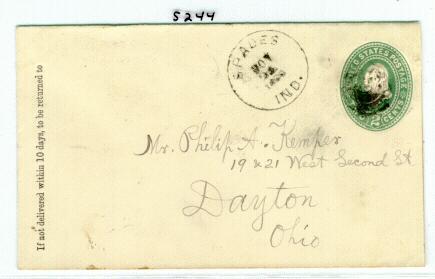 5244
SPADES
NOV
IND.
UNITED STATES POSTAGE
2 CENTS
Mr. Philip A. Kemper
19 & 21 West Second St
Dayton
Ohio
If not delivered within 10 days, to be returned to